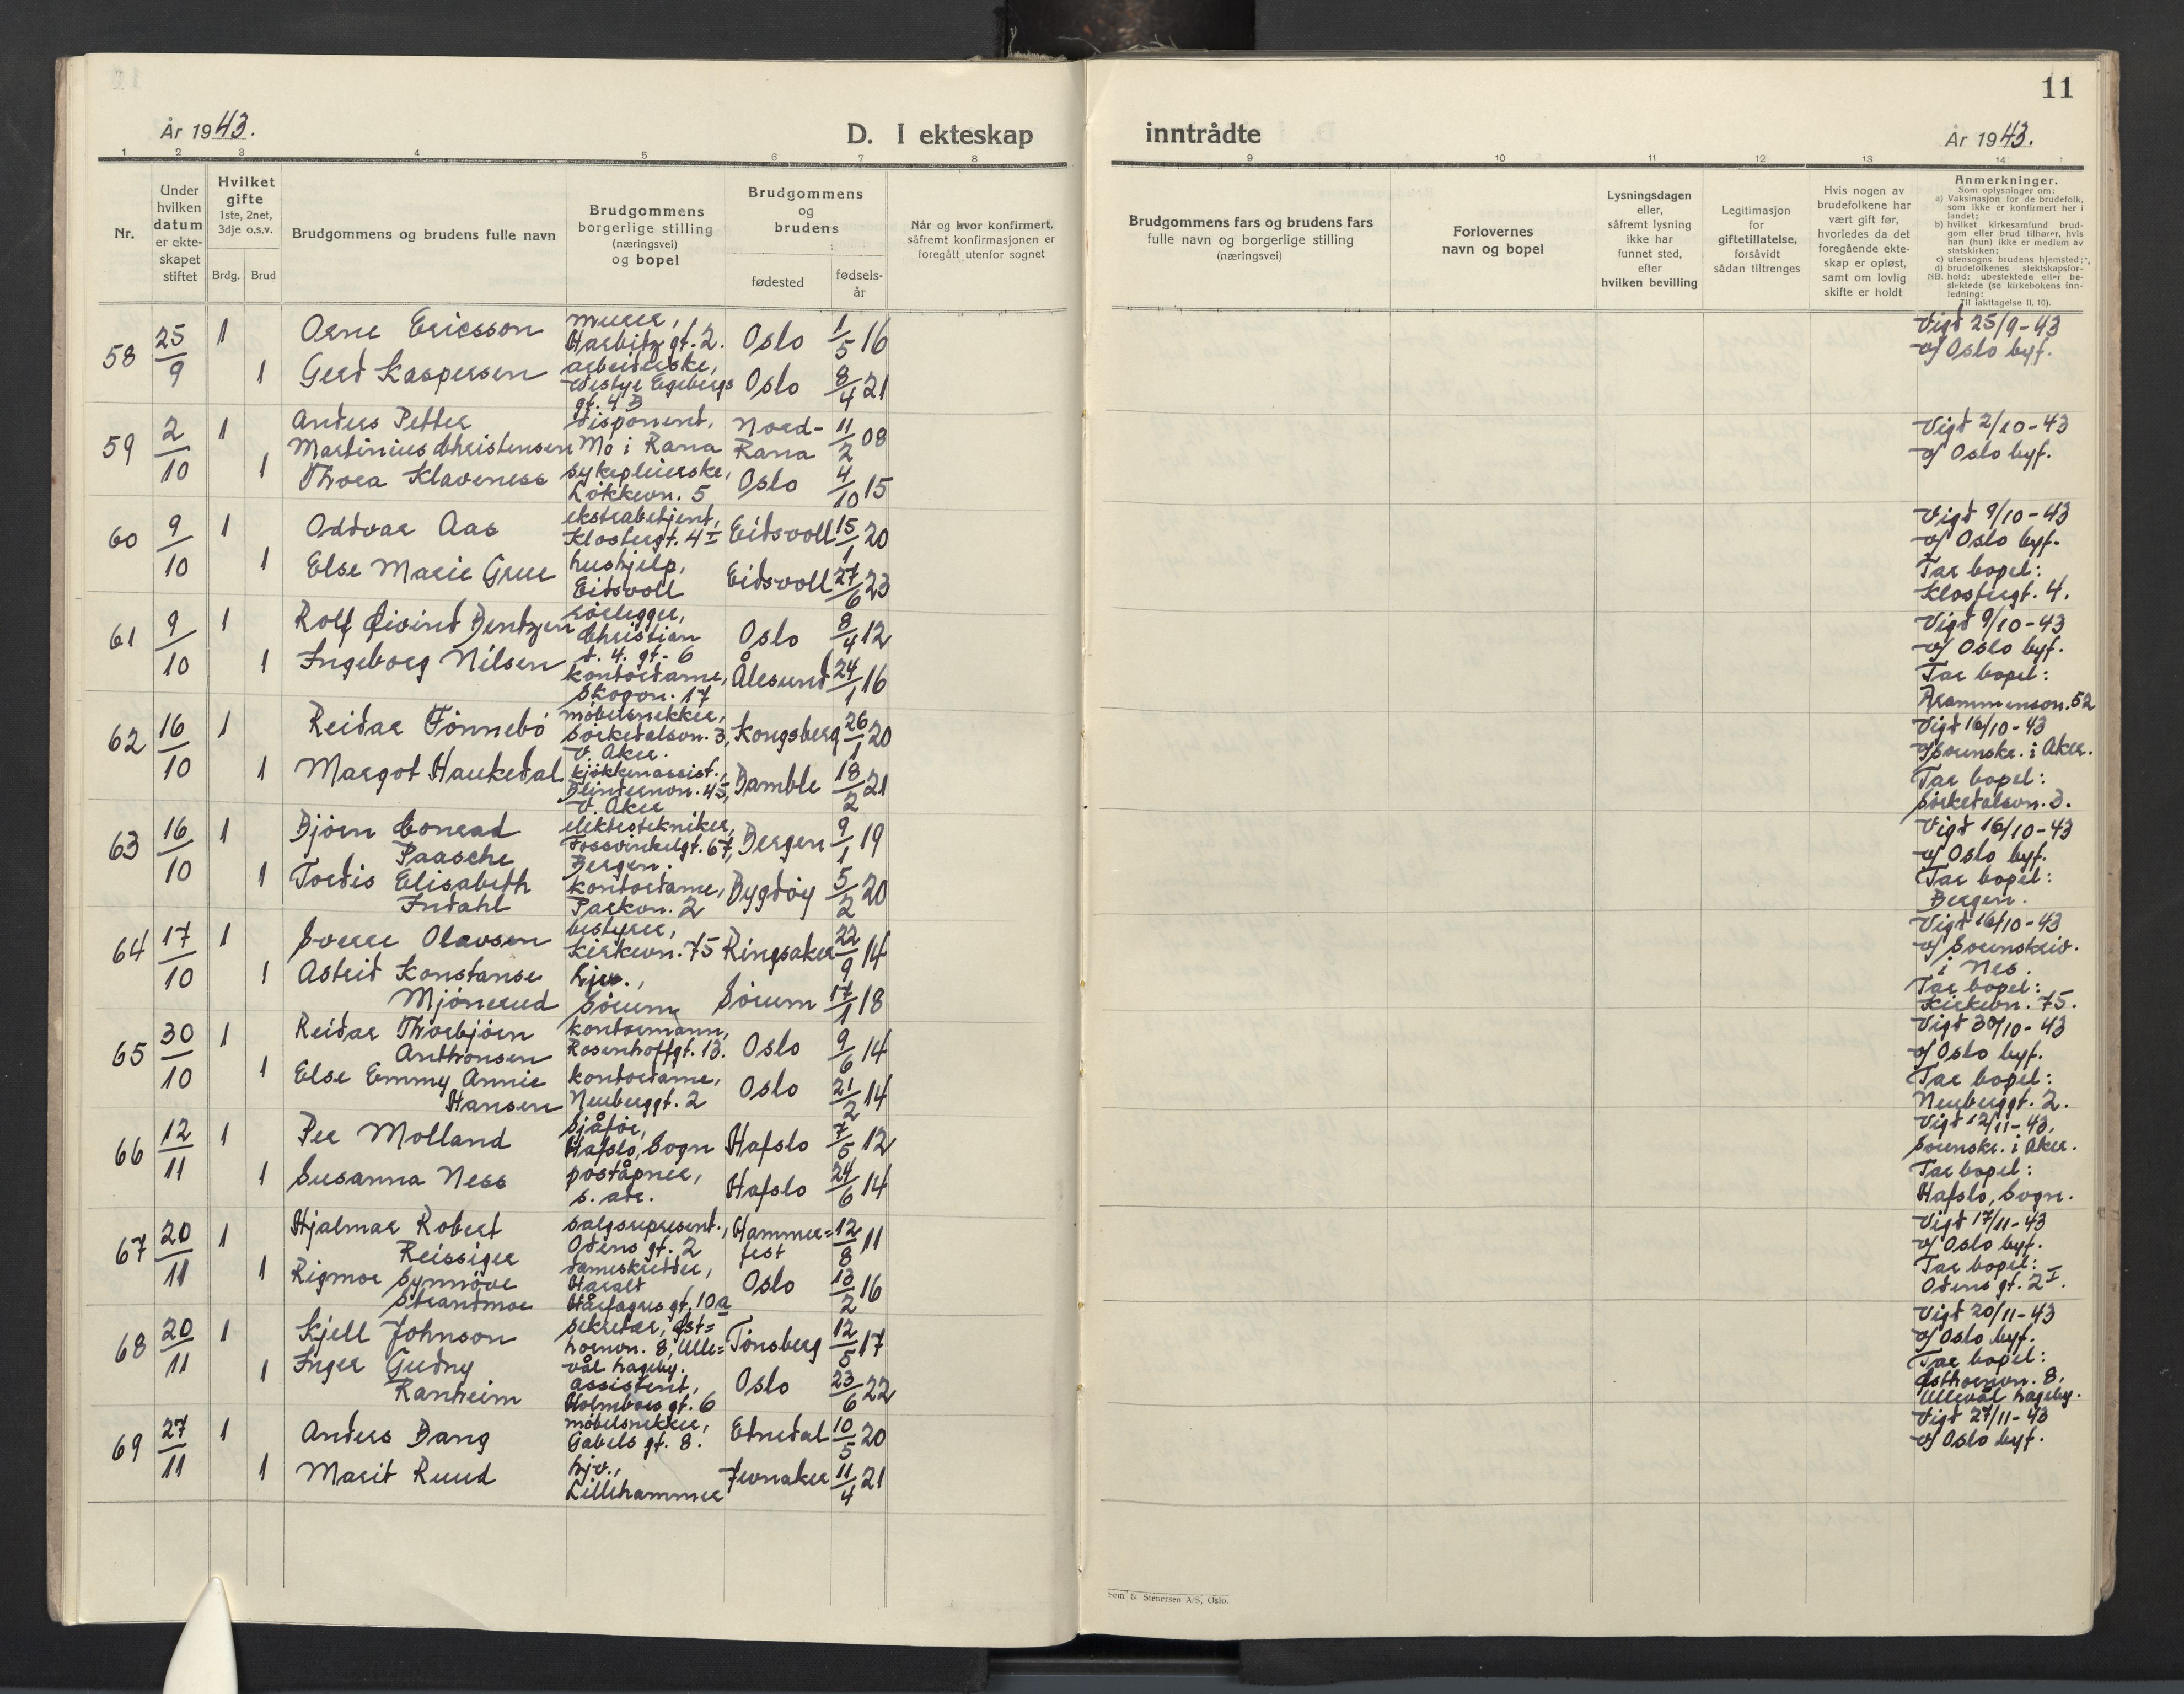 År 1943.
D. I ekteskap
1 2 3 4 5 6 7 8
Nr.
Under hvilken datum er ekteskapet stiftet
Hvilket gifte
1ste, 2net, 3dje o.s.v.
Brdg. Brud
Brudgommens og brudens fulle navn
Brudgommens
borgerlige stilling
(næringsvei)
og bopel
Brudgommens
og
brudens
fødested
fødsels-
år
Når og hvor konfirmert,
såfremt konfirmasjonen er
foregått utenfor sognet
58 25/9 1 Arne Ericsson murer, Harbitz gt. 2. Oslo 1/5 16
1 Gerd Kaspersen arbeiderske, Westye Egebergs gt. 4 B Oslo 8/4 21
59 2/10 1 Anders Petter Martinius Christensen disponent, Mo i Rana Nord-Rana 11/2 08
1 Thora Klaveness sykepleierske, Løkkevn. 5 Oslo 4/10 15
60 9/10 1 Oddvar Aas ekstrabetjent, Klostergt. 4 I Eidsvoll 15/1 20
1 Else Marie Grue hushjelp, Eidsvoll Eidsvoll 27/6 23
61 9/10 1 Rolf Eivind Bentzen rørlegger, Christian d. 4. gt. 6 Oslo 8/4 12
1 Ingeborg Nilsen kontordame, Skogvn. 17 Ålesund 24/1 16
62 16/10 1 Reidar Tönnebö møbelsnekker, Sørkedalsvn. 3, V. Aker. Kongsberg 26/1 20
1 Margot Haukedal kjøkkenassist., Blindernvn. 45, V. Aker Bamble 18/2 21
63 16/10 1 Bjørn Conrad Paasche elektrotekniker, Fossvinkelgt. 67, Bergen. Bergen 9/1 19
1 Tordis Elisabeth Indahl kontordame, Parkvn. 2 Bygdøy 5/2 20
64 17/10 1 Sverre Olavsen bestyrer, Kirkevn. 75 Ringsaker 22/9 14
1 Astrid Konstanse Mjönerud hjev., Sørum Sørum 17/1 18
65 30/10 1 Reidar Thorbjørn Anthonsen kontormann, Rosenhoffgt. 13. Oslo 9/6 14
1 Else Emmy Annie Hansen kontordame, Neuberggt. 2 Oslo 21/2 14
66 12/11 1 Per Molland sjåfør, Hafslo, Sogn Hafslo 7/5 12
1 Susanna Ness poståpner, s. adr. Hafslo 24/6 14
67 20/11 1 Hjalmar Robert Reissiger salgsrepresent., Odins gt. 2 Hammer=fest 12/8 11
1 Rigmor Synnöve Strandmoe dameskredder, Harald Hårfagres gt. 10 a Oslo 13/2 16
68 20/11 1 Kjell Johnson sekretær, Øst=hornvn. 8, Ulle=vål hageby. Tønsberg 12/5 17
1 Inger Gudny Ranheim assistent, Holmboes gt. 6 Oslo 23/6 22
69 27/11 1 Anders Bang møbelsnekker, Gabels gt. 8. Etnedal 10/5 20
1 Marit Ruud hjv., Lillehammer Jevnaker 11/4 21
11
inntrådte
År 1943.
9 10 11 12 13 14
Brudgommens fars og brudens fars
fulle navn og borgerlige stilling
(næringsvei)
Forlovernes
navn og bopel
Lysningsdagen
eller,
såfremt lysning
ikke har
funnet sted,
efter
hvilken bevilling
Legitimasjon
for
giftetillatelse,
forsåvidt
sådan tiltrenges
Hvis nogen av
brudefolkene har
vært gift før,
hvorledes da det
foregående ekte-
skap er opløst,
samt om lovlig
skifte er holdt
Anmerkninger.
Som oplysninger om:
a) Vaksinasjon for de brudefolk,
som ikke er konfirmert her i
landet;
b) hvilket kirkesamfund brud-
gom eller brud tilhører, hvis
han (hun) ikke er medlem av
statskirken;
c) utensogns brudens hjemsted;
d) brudefolkenes slektskapsfor-
NB. hold: ubeslektede eller be-
slektede (se kirkebokens inn-
ledning:
til iakttagelse II, 10).
Vigd 25/9-43
af Oslo byf.
Vigd 2/10-43
af Oslo byf.
Vigd 9/10-43
af Oslo byf.
Tar bopel:
Klostergt. 4.
Vigd 9/10-43
af Oslo byf.
Tar bopel:
Drammensvn. 52
Vigd 16/10-43
af Sorenskr. i Aker.
Tar bopel:
Sørkedalsvn. 3.
Vigd 16/10-43
af Oslo byf.
Tar bopel:
Bergen.
Vigd 16/10-43
af Sorenskriv.
i Nes.
Tar bopel:
Kirkevn. 75.
Vigd 30/10-43
af Oslo byf.
Tar bopel:
Neuberggt. 2.
Vigd 12/11-43,
Sorenskr. i Aker.
Tar bopel:
Hafslo, Sogn.
Vigd 17/11-43
af Oslo byf.
Tar bopel:
Odins gt. 2 I.
Vigd 20/11-43
af Oslo byf.
Tar bopel:
Østhornvn. 8,
Ullevål hageby.
Vigd 27/11-43
af Oslo byf.
Sem & Stenersen A/S, Oslo.